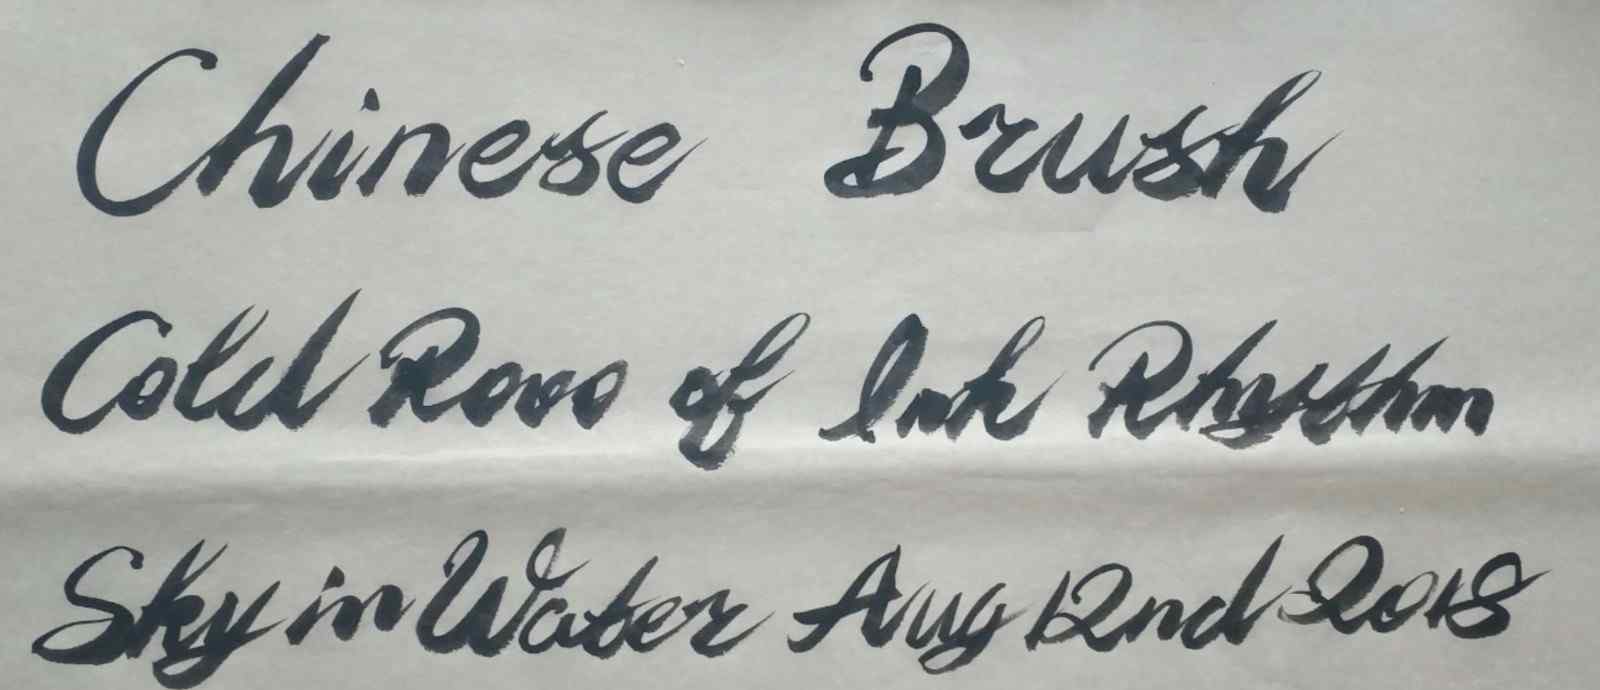 Chinese Brush
Cold of Ink Rhythm
Sky in Water Aug 12nd 2018